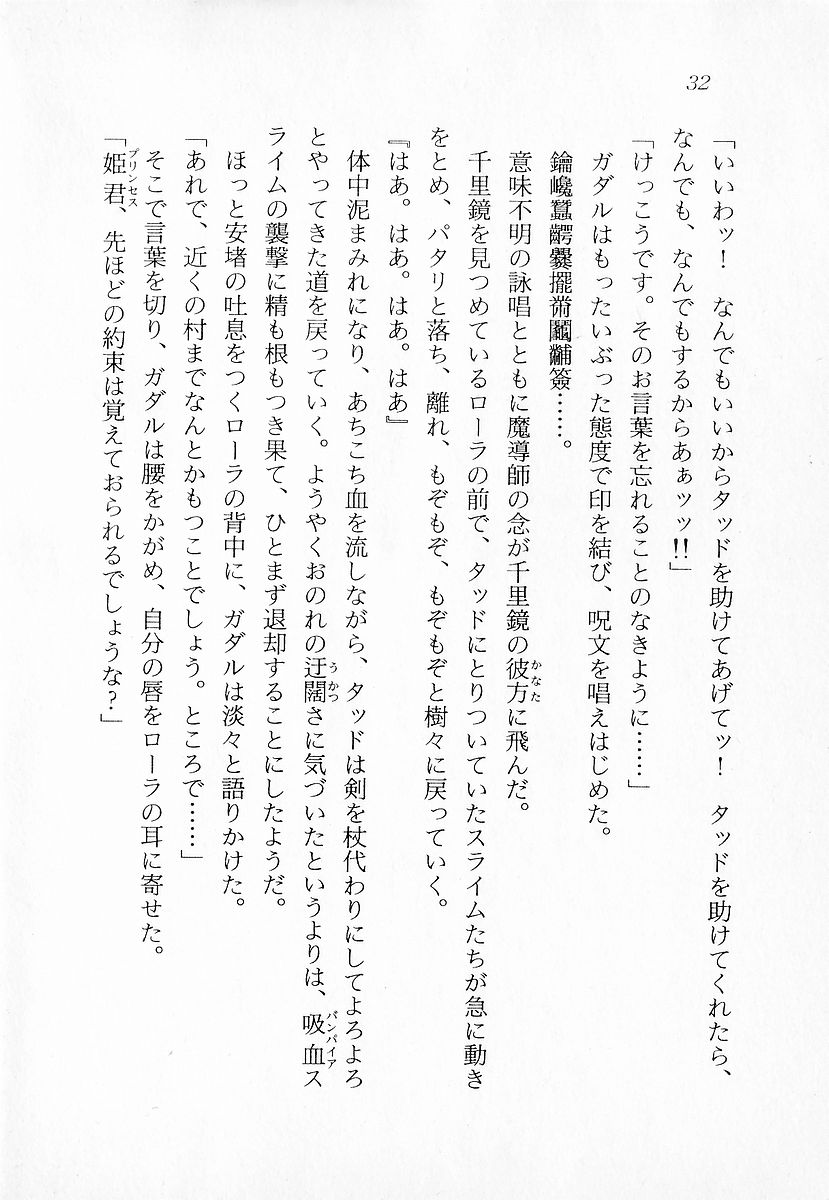 32
「いいわッ！　なんでもいいからタッドを助けてあげてッ！　タッドを助けてくれたら、
なんでも、なんでもするからあぁッッ!!」
「けっこうです。そのお言葉を忘れることのなきように……」
ガダルはもったいぶった態度で印を結び、呪文を唱えはじめた。
鑰巉蠶齶爨擺黹鬮黼簽……。
意味不明の詠唱とともに魔導師の念が千里鏡の彼方に飛んだ。
千里鏡を見つめているローラの前で、タッドにとりついていたスライムたちが急に動き
をとめ、パタリと落ち、離れ、もぞもぞ、もぞもぞと樹々に戻っていく。
『はあ。はあ。はあ。はあ』
体中泥まみれになり、あちこち血を流しながら、タッドは剣を杖代わりにしてよろよろ
とやってきた道を戻っていく。ようやくおのれの迂闊さに気づいたというよりは、吸血ス
ライムの襲撃に精も根もつき果て、ひとまず退却することにしたようだ。
ほっと安堵の吐息をつくローラの背中に、ガダルは淡々と語りかけた。
「あれで、近くの村までなんとかもつことでしょう。ところで……」
そこで言葉を切り、ガダルは腰をかがめ、自分の唇をローラの耳に寄せた。
「姫君、先ほどの約束は覚えておられるでしょうな？」